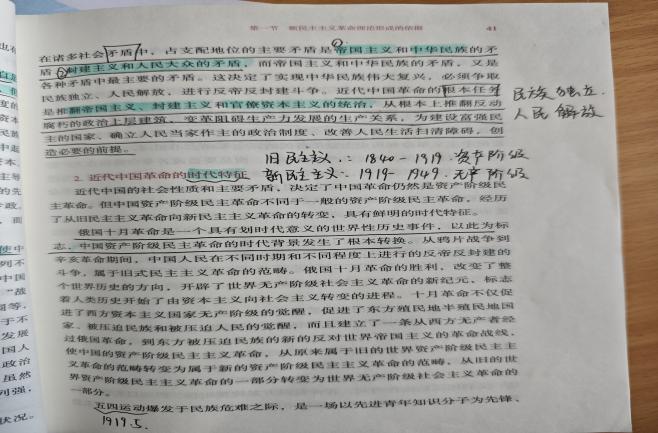 第一节 新民主主义革命理论形成的依据 41
在诸多社会矛盾中，占支配地位的主要矛盾是帝国主义和中华民族的矛
盾、封建主义和人民大众的矛盾，而帝国主义和中华民族的矛盾，又是
各种矛盾中最主要的矛盾。这决定了实现中华民族伟大复兴，必须争取
民族独立、人民解放，进行反帝反封建斗争。近代中国革命的根本任务
是推翻帝国主义、封建主义和官僚资本主义的统治，从根本上推翻反动
腐朽的政治上层建筑，变革阻碍生产力发展的生产关系，为建设富强民
主的国家、确立人民当家作主的政治制度、改善人民生活扫清障碍，创
造必要的前提。
民族独立.
人民解放
旧民主主义：1840-1919.资产阶级
2. 近代中国革命的时代特征
新民主主义：1919-1949.无产阶级
近代中国的社会性质和主要矛盾，决定了中国革命仍然是资产阶级民
主革命。但中国资产阶级民主革命不同于一般的资产阶级民主革命，经历
了从旧民主主义革命向新民主主义革命的转变，具有鲜明的时代特征。
俄国十月革命是一个具有划时代意义的世界性历史事件，以此为标
志，中国资产阶级民主革命的时代背景发生了根本转换。从鸦片战争到
辛亥革命期间，中国人民在不同时期和不同程度上进行的反帝反封建的
斗争，属于旧式民主主义革命的范畴。俄国十月革命的胜利，改变了整
个世界历史的方向，开辟了世界无产阶级社会主义革命的新纪元，标志
着人类历史开始了由资本主义向社会主义转变的进程。十月革命不仅促
进了西方资本主义国家无产阶级的觉醒，促进了东方殖民地半殖民地国
家、被压迫民族和被压迫人民的觉醒，而且建立了一条从西方无产者经
过俄国革命，到东方被压迫民族的新的反对世界帝国主义的革命战线，
使中国的资产阶级民主主义革命，从原来属于旧的世界资产阶级民主主
义革命的范畴转变为属于新的资产阶级民主主义革命的范畴，从旧的世
界资产阶级民主主义革命的一部分转变为世界无产阶级社会主义革命的
一部分。
五四运动爆发于民族危难之际，是一场以先进青年知识分子为先锋、
1919.5.